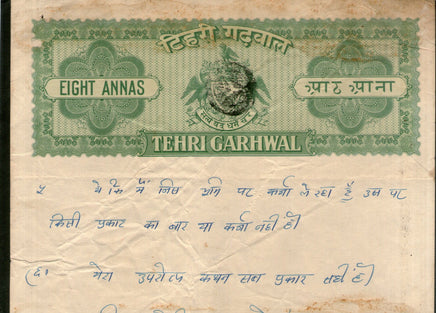 टिहरी गढ़वाल
EIGHT ANNAS
आठ आना
TEHRI GARHWAL
५ ये कि मैं जिस भूमि पर कर्जा ले रहा हूँ उस पर
किसी प्रकार का भार या कर्जा नहीं है।
(६) मेरा उपरोक्त कथन सब प्रकार सही है।